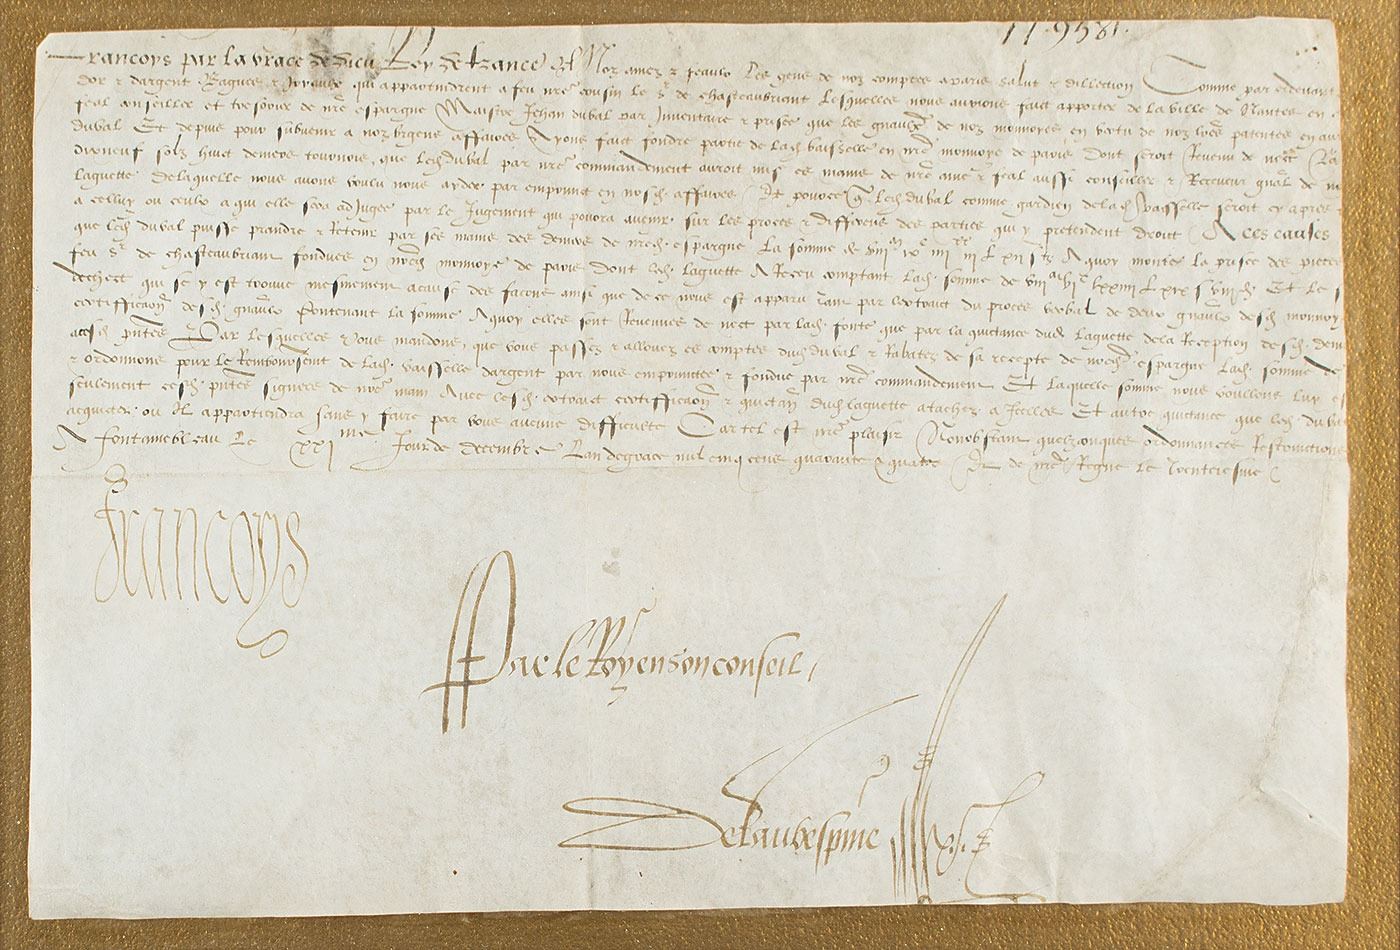 11.9581.
Francoys par la grace de dieu Roy de france A Noz amez & feaulx Les gens de noz comptes a paris salut & dillection Comme par cydevant
dor & dargent Bagues & Joyaulx qui appartindrent a feu nre cousin le sr de chasteaubriant Lesquelles nous aurions fait apporter de la ville de Nantes en
feal conseiller et tresorier de nre espargne Maistre Jehan duval par Inventaire & prisee que les gnaulx de noz monnoyes en vertu de noz lres patentes en
duval Et depuis pour subvenir a noz urgens affaires Ayons fait fondre partie de lad vaisselle en nre monnoye de paris dont seroit Revenu de nect
dixneuf solz huict deniers tournois, que led duval par nre commandement auroit mis es mains de nre ame & feal aussi conseiller & Receveur gnal de
laguette Delaquelle nous avons voulu nous ayder par emprunct en nosd. affaires Et pource q led duval comme gardien de lad vaisselle seroit cy apres
a celluy ou ceulx a qui elle sera adjugee par le Jugement qui pourra avenir sur les proces & differens des parties qui y pretendent droict A ces causes
que led duval puisse prandre & Retenir par ses mains des deniers de nred. espargne La somme de A quoy monte la prisee des pieces
feu sr de chasteaubriant fondues en nred monnoye de paris dont led. laguette A Receu comptant lad. somme de Et le
dechect qui se y est trouve mesmement acause des facons ainsi que de ce nous est apparu tant par lextraict du proces verbal de deux gnaulx desd monnoy
certifficaon desd. gnaulx Contenant la somme A quoy elles sont Revenues de nect par lad. fonte que par la quictance dud. laguette de la Reception desd. deni
acesd. pntes Par lesquelles Vous mandons, que vous passez & allouez es comptes dud duval & Rabatez de sa recepte de nred. espargne Lad. somme de
& ordonnons pour le Remboursement de lad. vaisselle dargent par nous empruntee & fondue par nre commandement Et laquelle somme nous voullons luy es
seulement cesd. pntes signees de nre main Avec lesd. extraict certifficaon & quictan dud laguette atachez a Icelles Et autre quictance que led. duval
acquicter ou Il appartiendra sans y faire par vous aucune difficulte Car tel est nre plaisir Nonobstant quelzconques ordonnances Restrinctions
A fontainebleau Le XXIme Jour de decembre Lan de grace mil cinq cens quarante & quatre Et de nre Regne Le trenteiesme
francoys
Par le Roy en son conseil
Delaubespine